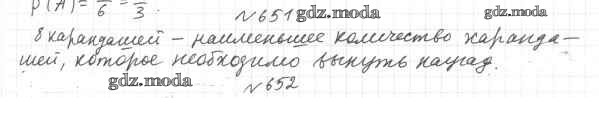 P(A) = 6 = 3.
№651 gdz.moda gdz.moda
8 карандашей – наименьшее количество каранда-
шей, которое необходимо вынуть наугад.
gdz.moda
№652